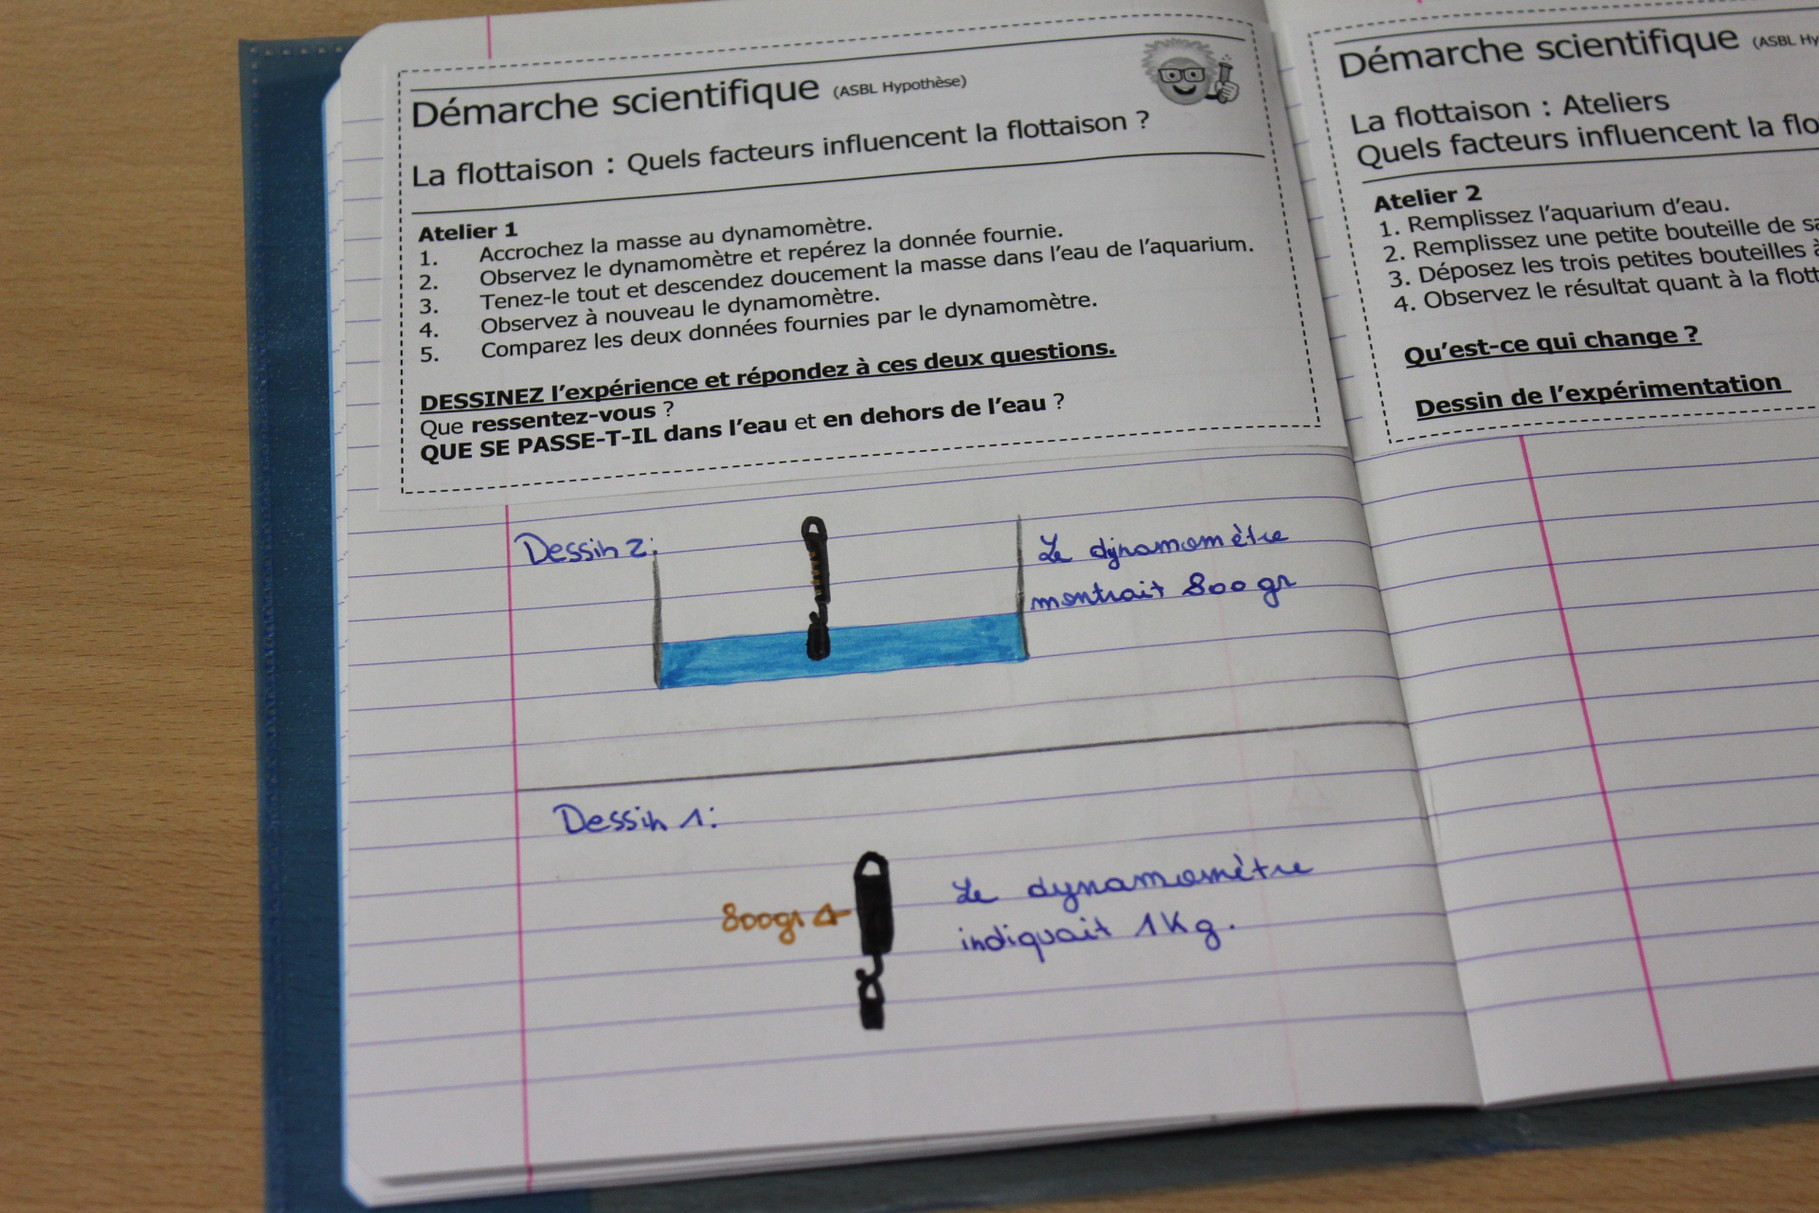 Démarche scientifique (ASBL Hypothèse)
La flottaison : Quels facteurs influencent la flottaison ?
Atelier 1
1. Accrochez la masse au dynamomètre.
2. Observez le dynamomètre et repérez la donnée fournie.
3. Tenez-le tout et descendez doucement la masse dans l'eau de l'aquarium.
4. Observez à nouveau le dynamomètre.
5. Comparez les deux données fournies par le dynamomètre.
DESSINEZ l'expérience et répondez à ces deux questions.
Que ressentez-vous ?
QUE SE PASSE-T-IL dans l'eau et en dehors de l'eau ?
Dessin 2:
Le dynamomètre
montrait 800 gr
Dessin 1:
800gr
Le dynamomètre
indiquait 1Kg.
Démarche scientifique (ASBL
La flottaison : Ateliers
Quels facteurs influencent la
Atelier 2
1. Remplissez l'aquarium d'eau.
2. Remplissez une petite bouteille de
3. Déposez les trois petites bouteilles à
4. Observez le résultat quant à la
Qu'est-ce qui change ?
Dessin de l'expérimentation